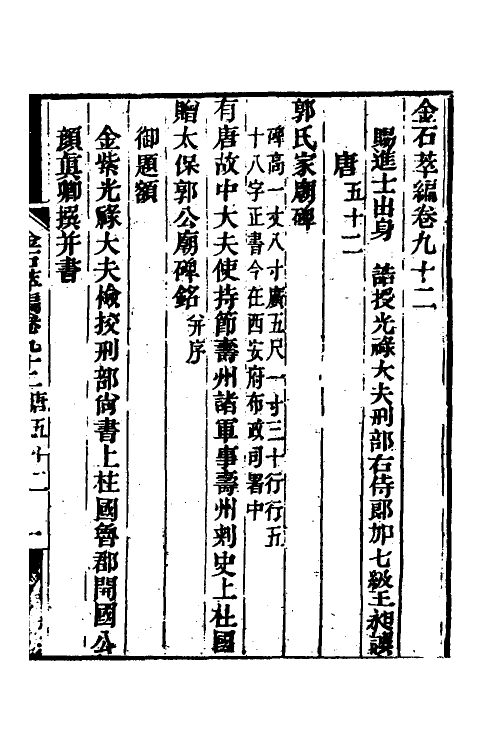 金石萃編卷九十二
賜進士出身 誥授光祿大夫刑部右侍郎加七級王昶譔
唐五十二
郭氏家廟碑
碑高一丈八寸廣五尺一寸三十行行五
十八字正書今在西安府布政司署中
有唐故中大夫使持節壽州諸軍事壽州刺史上柱國
贈太保郭公廟碑銘并序
御題額
金紫光祿大夫檢挍刑部尚書上柱國魯郡開國公
顏眞卿撰并書
金石萃編卷九十二 唐五十二 一